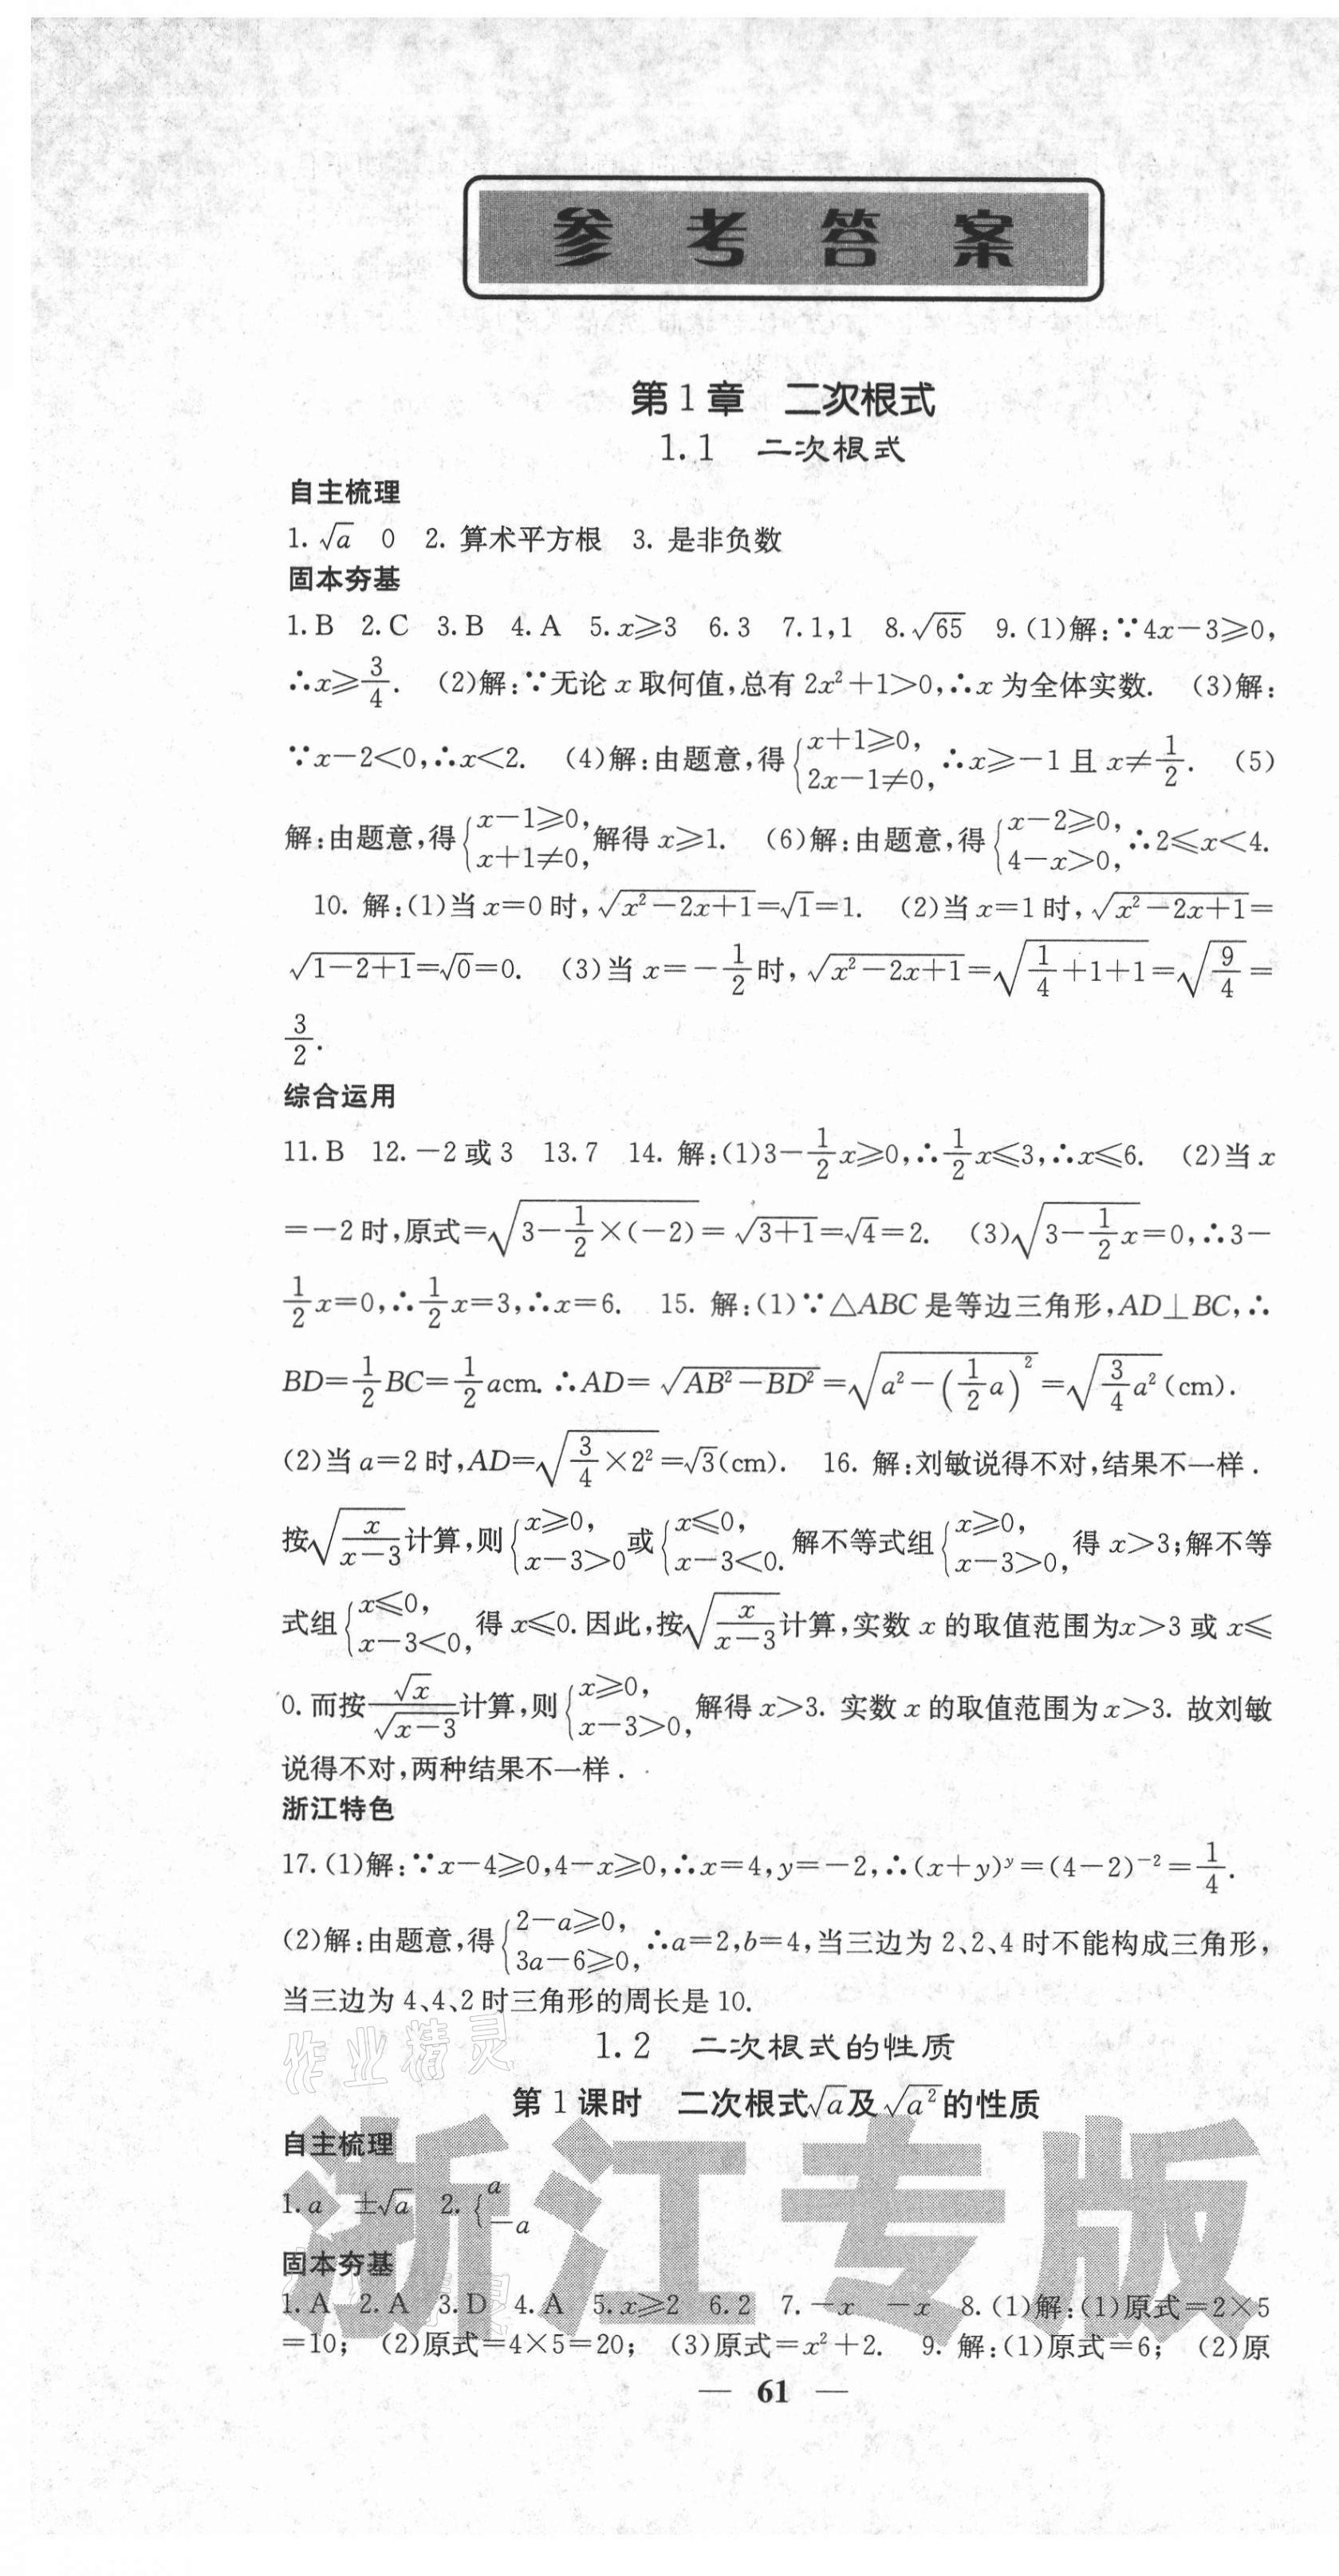 参考答案
第1章 二次根式
1.1 二次根式
自主梳理
1. √a 0 2. 算术平方根 3. 是非负数
固本夯基
1.B 2.C 3.B 4.A 5.x≥3 6.3 7.1,1 8.√65 9.(1)解:∵4x−3≥0,
∴x≥3/4. (2)解:∵无论 x 取何值,总有 2x²+1>0,∴x 为全体实数. (3)解:
∵x−2<0,∴x<2. (4)解:由题意,得{x+1≥0, 2x−1≠0, ∴x≥−1 且 x≠1/2. (5)
解:由题意,得{x−1≥0, x+1≠0, 解得 x≥1. (6)解:由题意,得{x−2≥0, 4−x>0, ∴2≤x<4.
10. 解:(1)当 x=0 时,√(x²−2x+1)=√1=1. (2)当 x=1 时,√(x²−2x+1)=
√(1−2+1)=√0=0. (3)当 x=−1/2 时,√(x²−2x+1)=√(1/4+1+1)=√(9/4)=
3/2.
综合运用
11.B 12.−2 或 3 13.7 14. 解:(1)3−1/2x≥0,∴1/2x≤3,∴x≤6. (2)当 x
=−2 时,原式=√(3−1/2×(−2))=√(3+1)=√4=2. (3)√(3−1/2x)=0,∴3−
1/2x=0,∴1/2x=3,∴x=6. 15. 解:(1)∵△ABC 是等边三角形,AD⊥BC,∴
BD=1/2BC=1/2acm. ∴AD=√(AB²−BD²)=√(a²−(1/2a)²)=√(3/4a²)(cm).
(2)当 a=2 时,AD=√(3/4×2²)=√3(cm). 16. 解:刘敏说得不对,结果不一样.
按√(x/(x−3))计算,则{x≥0, x−3>0 或{x≤0, x−3<0. 解不等式组{x≥0, x−3>0, 得 x>3;解不等
式组{x≤0, x−3<0, 得 x≤0. 因此,按√(x/(x−3))计算,实数 x 的取值范围为x>3 或 x≤
0. 而按√x/√(x−3)计算,则{x≥0, x−3>0, 解得 x>3. 实数 x 的取值范围为 x>3. 故刘敏
说得不对,两种结果不一样.
浙江特色
17.(1)解:∵x−4≥0,4−x≥0,∴x=4,y=−2,∴(x+y)ʸ=(4−2)⁻²=1/4.
(2)解:由题意,得{2−a≥0, 3a−6≥0, ∴a=2,b=4,当三边为 2、2、4 时不能构成三角形,
当三边为 4、4、2 时三角形的周长是 10.
作业精灵
1.2 二次根式的性质
第1课时 二次根式√a及√a²的性质
浙江专版
自主梳理
1. a ±√a 2. {a −a
固本夯基
1.A 2.A 3.D 4.A 5.x≥2 6.2 7.−x −x 8.(1)解:(1)原式=2×5
=10; (2)原式=4×5=20; (3)原式=x²+2. 9. 解:(1)原式=6; (2)原
— 61 —